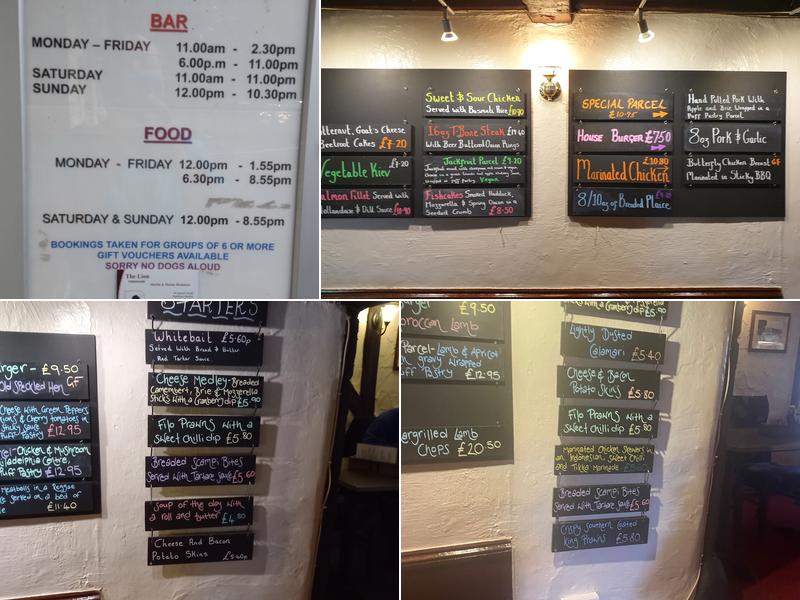 BAR
MONDAY – FRIDAY 11.00am - 2.30pm
6.00p.m - 11.00pm
SATURDAY 11.00am - 11.00pm
SUNDAY 12.00pm - 10.30pm
FOOD
MONDAY - FRIDAY 12.00pm - 1.55pm
6.30pm - 8.55pm
SATURDAY & SUNDAY 12.00pm - 8.55pm
BOOKINGS TAKEN FOR GROUPS OF 6 OR MORE
GIFT VOUCHERS AVAILABLE
SORRY NO DOGS ALOUD
The Lion
utternut, Goat's Cheese
Beetroot Cakes £7.20
Vegetable Kiev £7.20
Salmon Fillet Served with
Hollandaise & Dill Sauce
Sweet & Sour Chicken
Served with Basmati Rice
16oz T-Bone Steak
With Beer Battered Onion Rings
Jackfruit Parcel £9.20
Vegan
Fishcakes Smoked Haddock,
Mozzarella & Spring Onion in a
Seeded Crumb £8.50
SPECIAL PARCEL
£10.95
House Burger £7.50
£10.80
Marinated Chicken
8/10oz of Breaded Plaice
Hand Pulled Pork With
Apple and Brie Wrapped in a
Puff Pastry Parcel
8oz Pork & Garlic
Butterfly Chicken Breast GF
Marinated in Sticky BBQ
rger - £9.50
Old Speckled Hen GF
Cheese with Green Peppers
nions & Cherry tomatoes in
Sticky Sauce
Puff Pastry £12.95
cel - Chicken & Mushroom
iladelphia Centre,
uff Pastry £12.95
Meatballs in a Reggae
ce served on a bed of
£11.40
STARTERS
Whitebait £5.60p
Served With Bread & Butter
And Tartar Sauce
Cheese Medley - Breaded
Camembert, Brie & Mozzerella
Sticks with a Cranberry dip £5.90
Filo Prawns with a
Sweet Chilli dip £5.80
Breaded Scampi Bites
Served with Tartare Sauce £5.60
Soup of the day with
a roll and butter £4.80
Cheese And Bacon
Potato Skins £5.40p
rger £9.50
oroccan Lamb
Parcel - Lamb & Apricot
n gravy wrapped
uff Pastry £12.95
argrilled Lamb
Chops £20.50
Sticks with a (cranberry) dip £5.90
Lightly Dusted
Calamari £5.40
Cheese & Bacon
Potato Skins £5.80
Filo Prawns with a
Sweet Chilli dip £5.80
Marinated Chicken Skewers in
an Indonesian, Sweet Chilli
and Tikka Marinade
Breaded Scampi Bites
Served with Tartare Sauce £5.60
Crispy Southern Coated
King Prawns £5.80